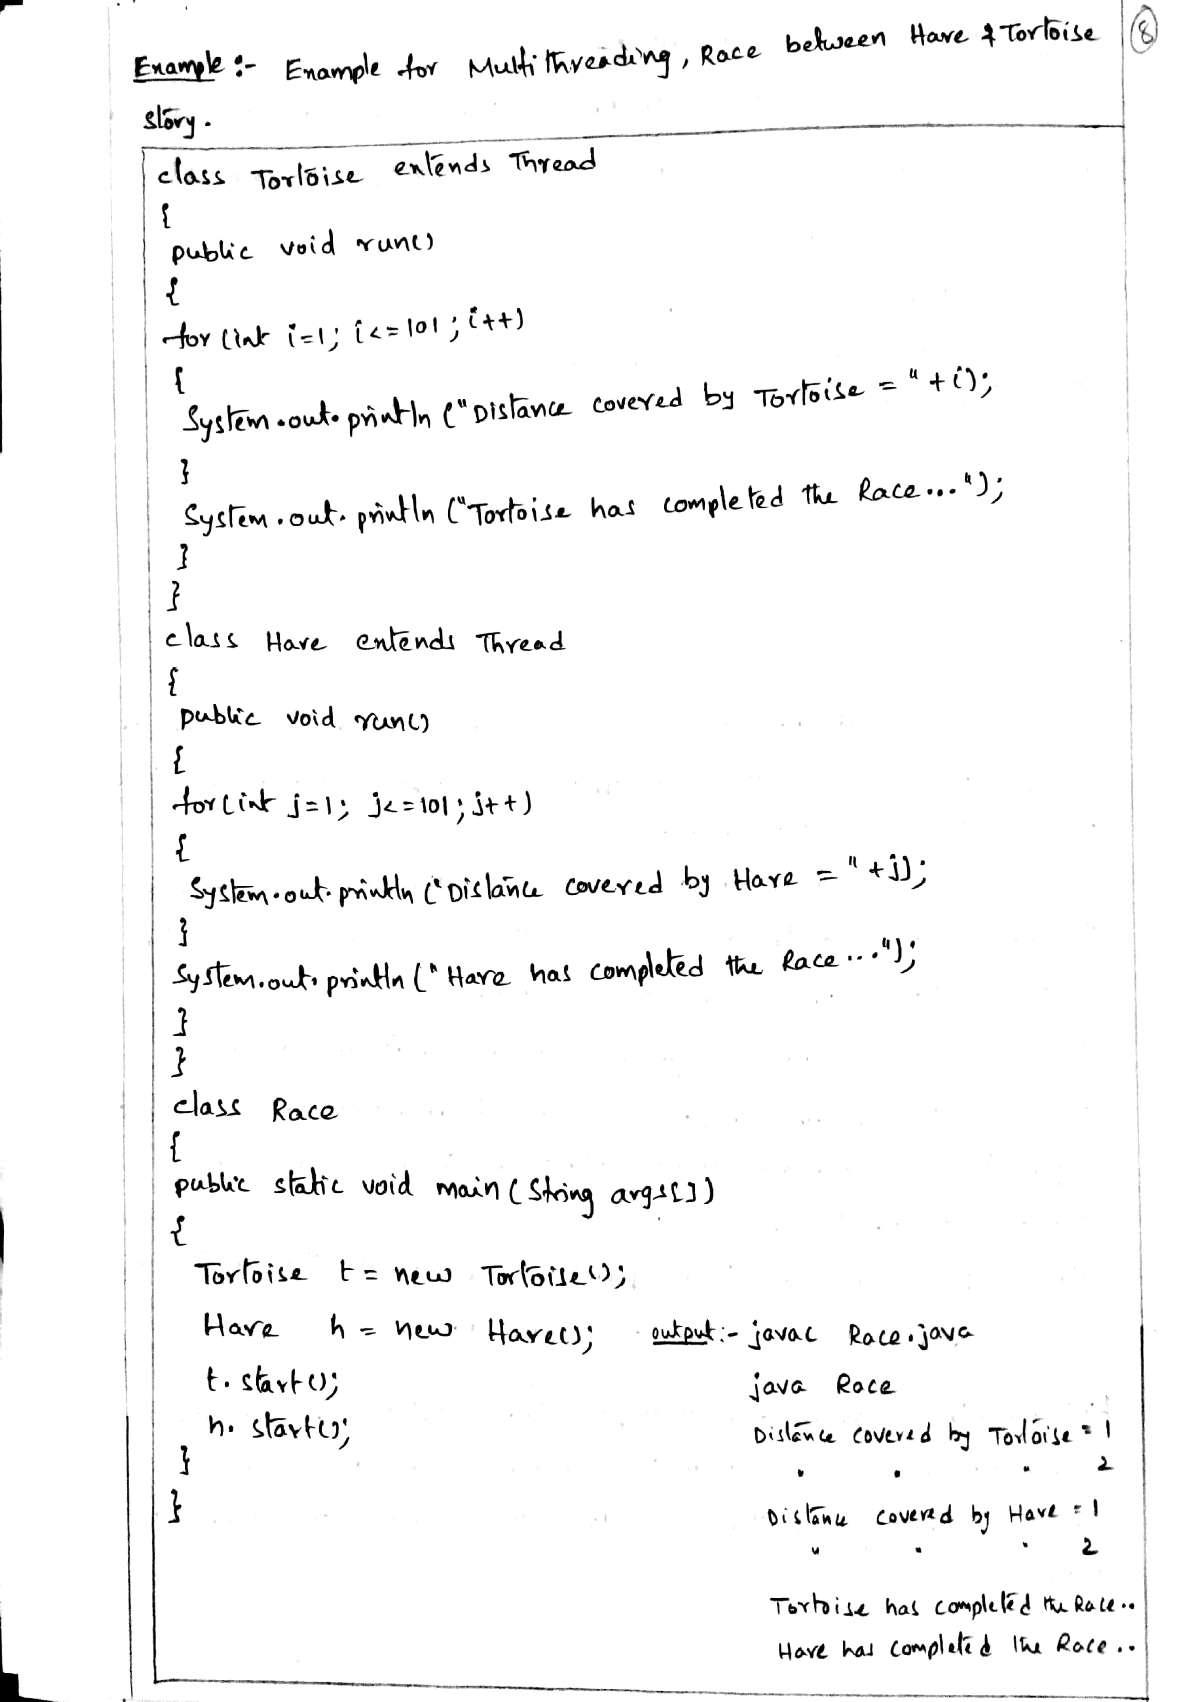 Example :- Example for Multithreading, Race between Hare & Tortoise
8
story.
class Tortoise extends Thread
{
public void run()
{
for (int i=1; i<=101; i++)
{
System.out.println ("Distance covered by Tortoise = " + i);
}
System.out.println ("Tortoise has completed the Race...");
}
}
class Hare extends Thread
{
public void run()
{
for (int j=1; j<=101; j++)
{
System.out.println ("Distance covered by Hare = " + j);
}
System.out.println ("Hare has completed the Race...");
}
}
class Race
{
public static void main (String args[])
{
Tortoise t = new Tortoise();
Hare h = new Hare();
t.start();
h.start();
}
}
output :- javac Race.java
java Race
Distance covered by Tortoise = 1
" " " 2
Distance covered by Hare = 1
" " " 2
Tortoise has completed the Race..
Hare has completed the Race..